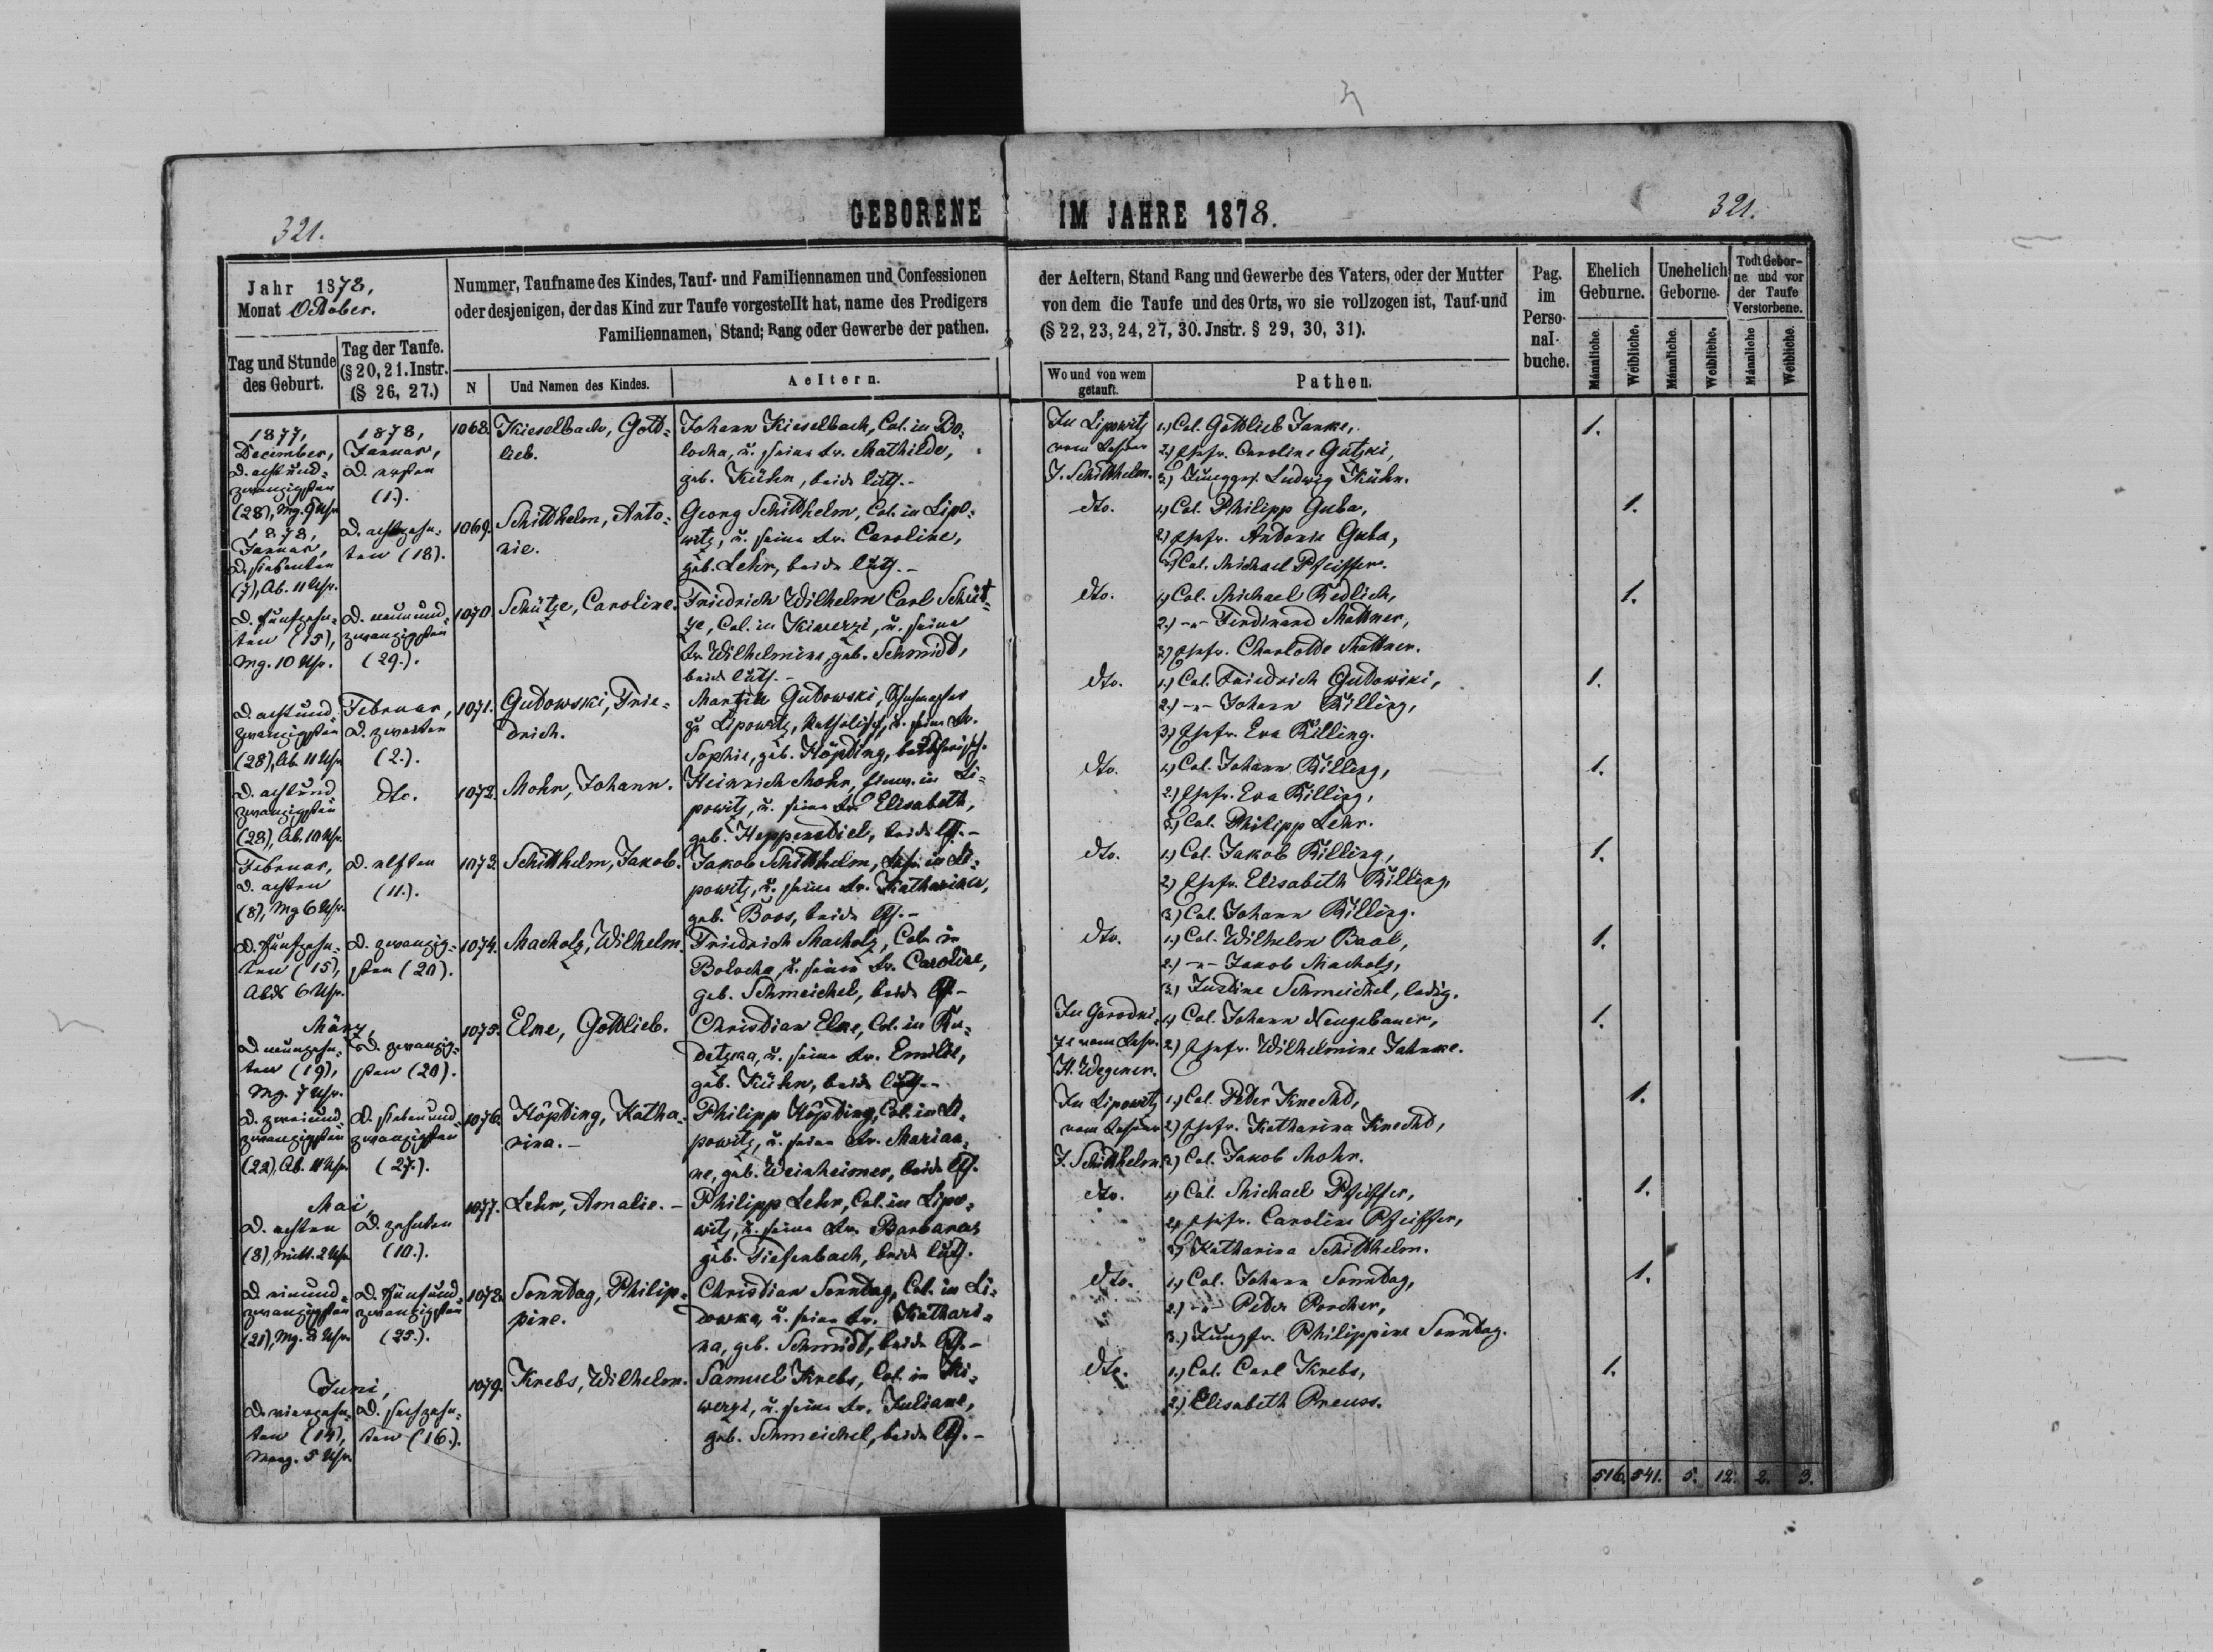 321.
GEBORENE IM JAHRE 1878.
321.
Jahr 1878,
Monat October.
Nummer, Taufname des Kindes, Tauf- und Familiennamen und Confessionen
oder desjenigen, der das Kind zur Taufe vorgestellt hat, name des Predigers
Familiennamen, Stand; Rang oder Gewerbe der pathen.
der Aeltern, Stand Rang und Gewerbe des Vaters, oder der Mutter
von dem die Taufe und des Orts, wo sie vollzogen ist, Tauf-und
(§ 22, 23, 24, 27, 30. Jnstr. § 29, 30, 31).
Pag.
im
Perso-
nal-
buche.
Ehelich
Geburne.
Unehelich
Geborne.
Todt Gebor-
ne und vor
der Taufe
Verstorbene.
Tag und Stunde
des Geburt.
Tag der Taufe.
(§ 20, 21. Instr.
(§ 26, 27.)
N
Und Namen des Kindes.
Aeltern.
Wo und von wem
getauft.
Pathen.
Männliche.
Weibliche.
Männliche.
Weibliche.
Männliche
Weibliche.
1877,
December,
D. achtund-
zwanzigsten
(28), Mg. 9 Uhr
1878,
Januar,
D. ersten
(1.).
1068.
Kieselbach, Gott-
lieb.
Johann Kieselbach, Col. in Bo-
locha, u. seine Fr. Mathilde,
geb. Kühn, beide luth.-
In Lipowitz
vom Lehrer
J. Schitthelm.
1.) Col. Gottlieb Janke,
2.) Ehefr. Caroline Gutzki,
3.) Junggs. Ludwig Kühn.
1.
1878,
Januar,
D. siebenten
(7), Ab. 11 Uhr.
D. achtzehn-
ten (18).
1069.
Schitthelm, Anto-
nie.
Georg Schitthelm, Col. in Lipo-
witz, u. seine Fr. Caroline,
geb. Lehr, beide luth.-
dto.
1.) Col. Philipp Guba,
2.) Ehefr. Antonie Guba,
3.) Col. Michael Pfeiffer.
1.
D. fünfzehn-
ten (15),
Mg. 10 Uhr.
D. neunund-
zwanzigsten
(29.).
1070.
Schütze, Caroline.
Friedrich Wilhelm Carl Schüt-
ze, Col. in Kiwerzi, u. seine
Fr. Wilhelmine, geb. Schmidt,
beide luth.-
dto.
1.) Col. Michael Redlich,
2.) -"- Ferdinand Mattner,
3.) Ehefr. Charlotte Mattner.
1.
D. achtund
zwanzigsten
(28), Ab. 11 Uhr
Februar,
D. zweiten
(2.).
1071.
Gutowski, Frie-
drich.
Martin Gutowski, Schuhmacher
zu Lipowitz, katholisch, u. seine Fr.
Sophie, geb. Höpting, lutherisch.
dto.
1.) Col. Friedrich Gutowski,
2.) -"- Johann Killing,
3.) Ehefr. Eva Killing.
1.
D. achtund
zwanzigsten
(28), Ab. 10 Uhr.
dto.
1072.
Mohr, Johann.
Heinrich Mohr, in Li-
powitz, u. seine Fr. Elisabeth,
geb. Heppenstiel, beide lth.-
dto.
1.) Col. Johann Killing,
2.) Ehefr. Eva Killing,
3.) Col. Philipp Lehr.
1.
Februar,
D. achten
(8), Mg 6 Uhr.
D. elften
(11.).
1073.
Schitthelm, Jakob.
Jakob Schitthelm, Lehr. in Li-
powitz, u. seine Fr. Katharina,
geb. Boos, beide lth.-
dto.
1.) Col. Jakob Killing,
2.) Ehefr. Elisabeth Killing,
3.) Col. Johann Killing.
1.
D. fünfzehn-
ten (15),
Abds 6 Uhr.
D. zwanzig-
sten (20).
1074.
Macholz, Wilhelm.
Friedrich Macholz, Col. in
Bolocha, u. seine Fr. Caroline,
geb. Schmeichel, beide lth.-
dto.
1.) Col. Wilhelm Baal,
2.) -"- Jakob Macholz,
3.) Justine Schmeichel, ledig.
1.
März,
D. neunzehn-
ten (19),
Mg. 7 Uhr.
D. zwanzig-
sten (20).
1075.
Elke, Gottlieb.
Christian Elke, Col. in
u. seine Fr. Emilie,
geb. Kühn, beide luth.-
In Gorodni-
ze vom Lehr.
H. Wegener.
1.) Col. Johann Neugebauer,
2.) Ehefr. Wilhelmine Jahnke.
1.
D. zweiund-
zwanzigsten
(22), Ab. 11 Uhr.
D. siebenund-
zwanzigsten
(27.).
1076.
Höpting, Katha-
rina.-
Philipp Höpting, Col. in Li-
powitz, u. seine Fr. Marian-
ne, geb. Weinheimer, beide lth.
In Lipowitz
vom Lehrer
J. Schitthelm.
1.) Col. Peter Knecht,
2.) Ehefr. Katharina Knecht,
3.) Col. Jakob Mohr.
1.
Mai,
D. achten
(8), Mitt. 2 Uhr
D. zehnten
(10.).
1077.
Lehr, Amalie.-
Philipp Lehr, Col. in Lipo-
witz, u. seine Fr. Barbara,
geb. Tiefenbach, beide luth.
dto.
1.) Col. Michael Pfeiffer,
2.) Ehefr. Caroline Pfeiffer,
3.) Katharina Schitthelm.
1.
D. einund-
zwanzigsten
(21), Mg. 2 Uhr.
D. fünfund-
zwanzigsten
(25.).
1078.
Sonntag, Philip-
pine.
Christian Sonntag, Col. in Li-
dowka, u. seine Fr. Kathari-
na, geb. Schmidt, beide lth.-
dto.
1.) Col. Johann Sonntag,
2.) -"- Peter Porcher,
3.) Jungfr. Philippine Sonntag.
1.
Juni,
D. vierzehn-
ten (14),
Morg. 5 Uhr.
D. sechzehn-
ten (16.).
1079.
Krebs, Wilhelm.
Samuel Krebs, Col. in Ki-
werzi, u. seine Fr. Juliane,
geb. Schmeichel, beide lth.-
dto.
1.) Col. Carl Krebs,
2.) Elisabeth Preuss.
1.
516. 541. 5. 12. 2. 3.